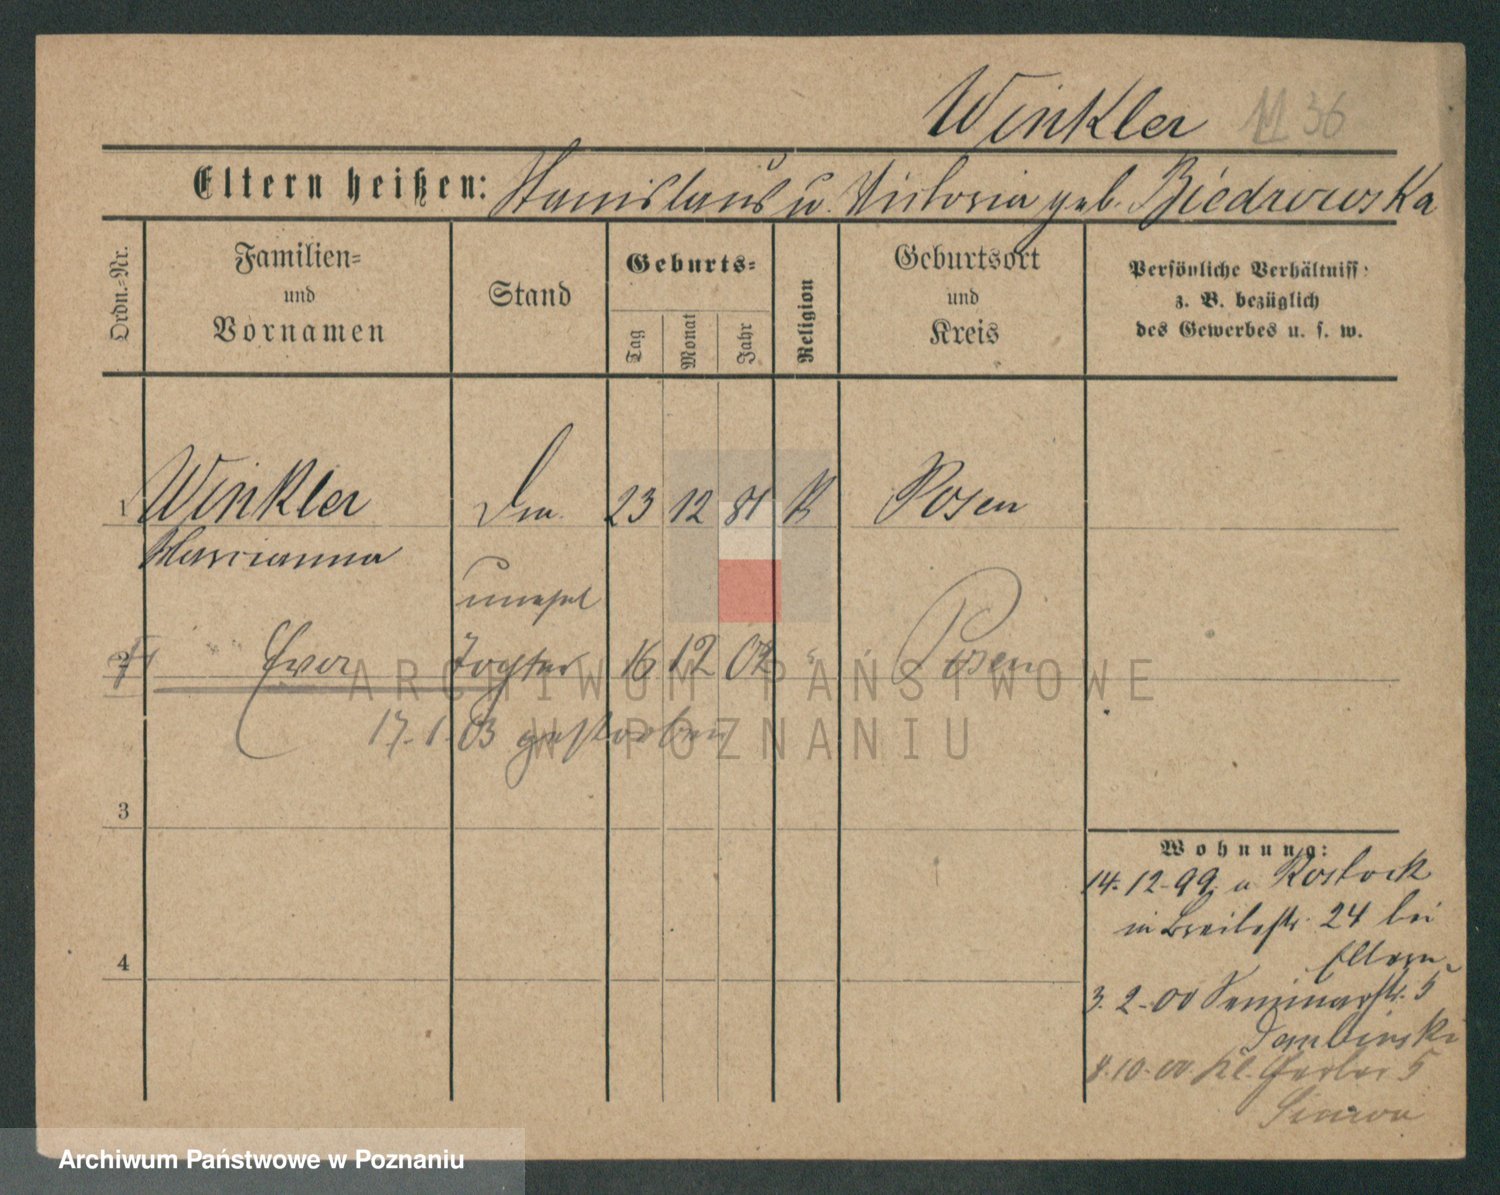 Winkler 36
Eltern heißen: Stanislaus u. Victoria geb. Biedrowska
Ordn.-Nr.
Familien-
und
Vornamen
Stand
Geburts-
Tag
Monat
Jahr
Religion
Geburtsort
und
Kreis
Persönliche Verhältniss:
z. B. bezüglich
des Gewerbes u. s. w.
1 Winkler 23 12 81 K Posen
Marianna
unehel
2 Eva Tochter 16 12 02 " Posen
17.1.03 gestorben
3
4
Wohnung:
14.12.99 a Rostock
in Breitestr. 24 bei
Eltern
3.2.00 Seminarstr. 5
Dembinski
8.10.00 Kl. Gerber 5
ARCHIWUM PAŃSTWOWE
W POZNANIU
Archiwum Państwowe w Poznaniu